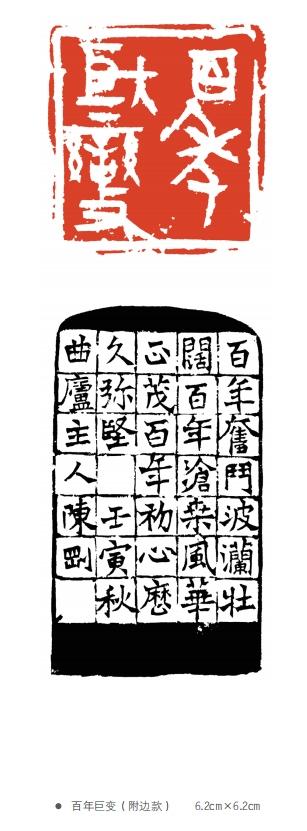 百年
巨變
百年奮鬥波瀾壯
闊百年滄桒風華
正茂百年初心歷
久弥堅 壬寅秋
曲廬主人陳剛
● 百年巨变（附边款） 6.2cm×6.2cm